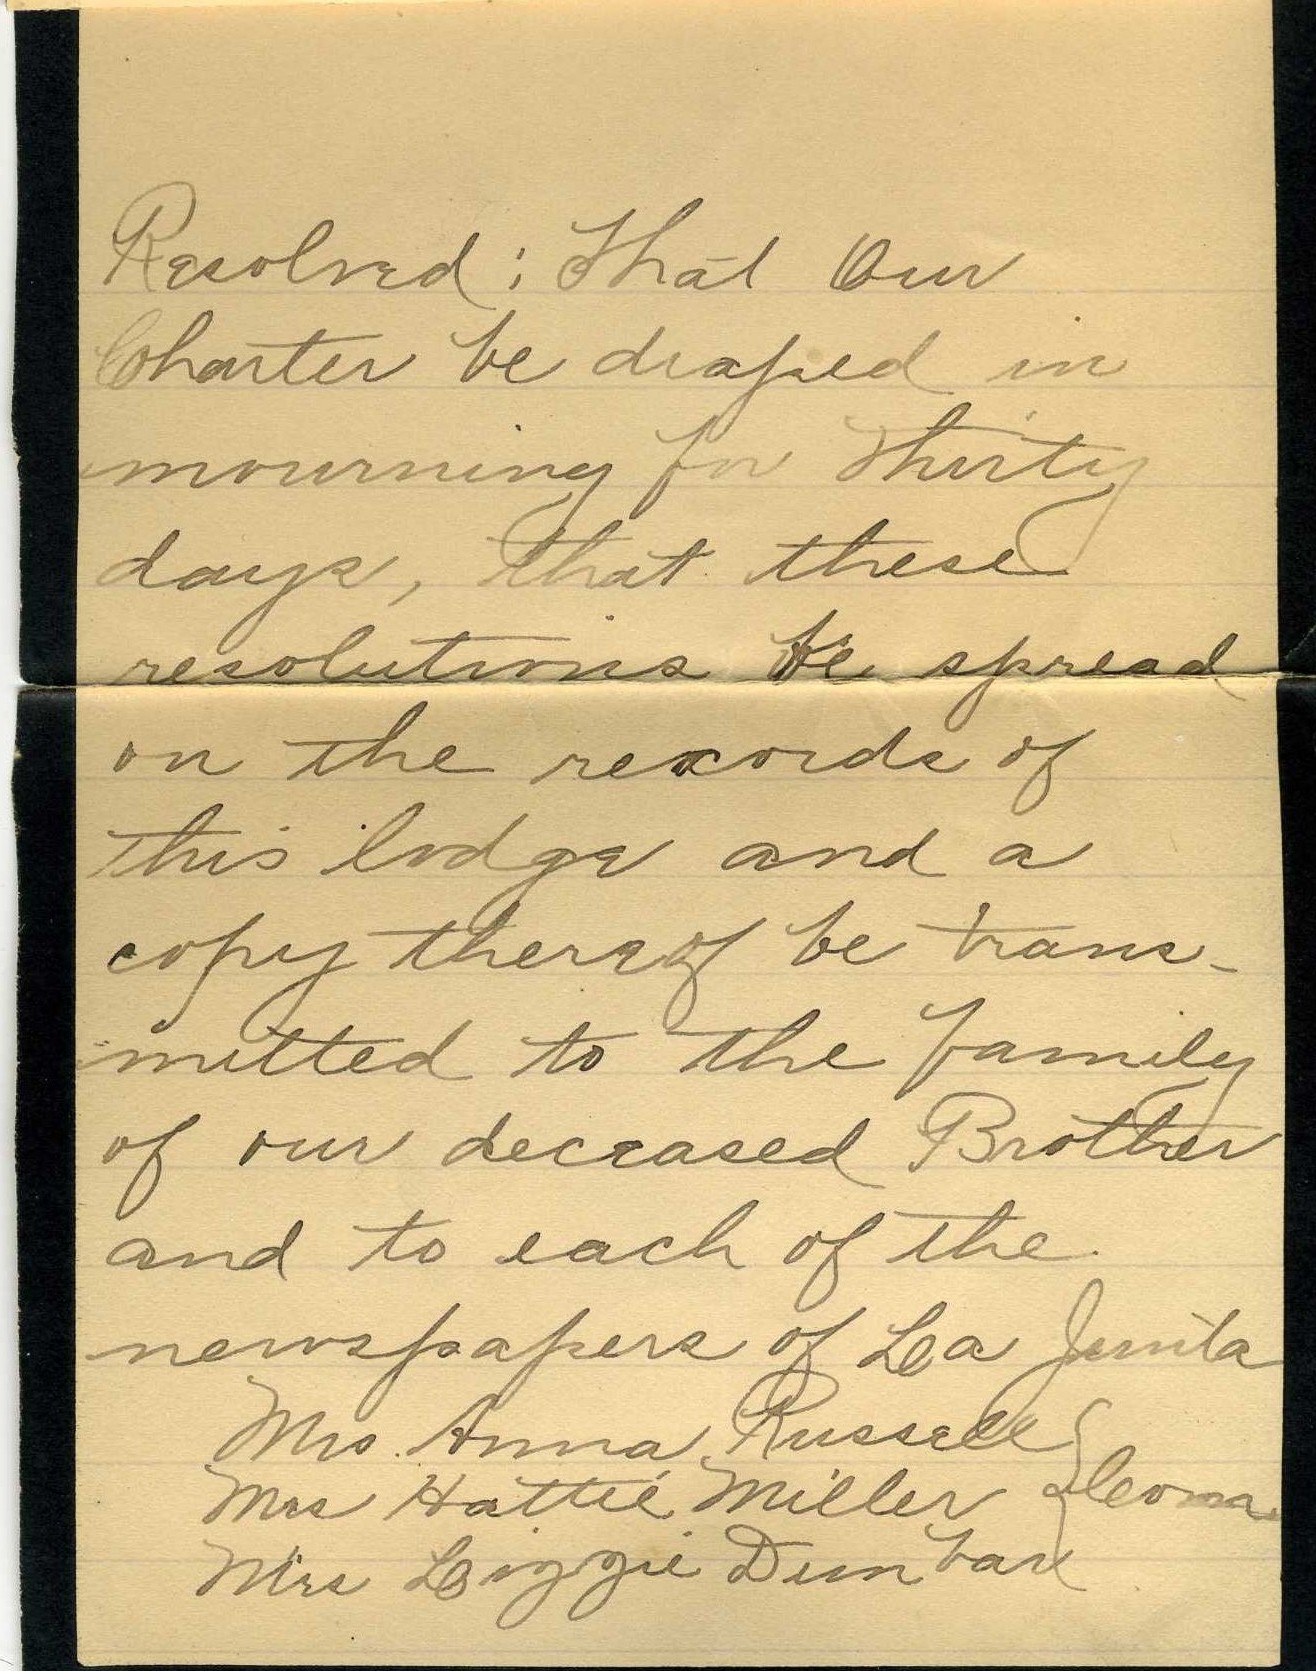 Resolved; That Our
Charter be draped in
mourning for Thirty
days, that these
resolutions be spread
on the records of
this lodge and a
copy thereof be trans-
mitted to the family
of our deceased Brother
and to each of the
newspapers of La Junta
Mrs. Anna Russell
Mrs Hattie Miller } Com
Mrs Lizzie Dunbar